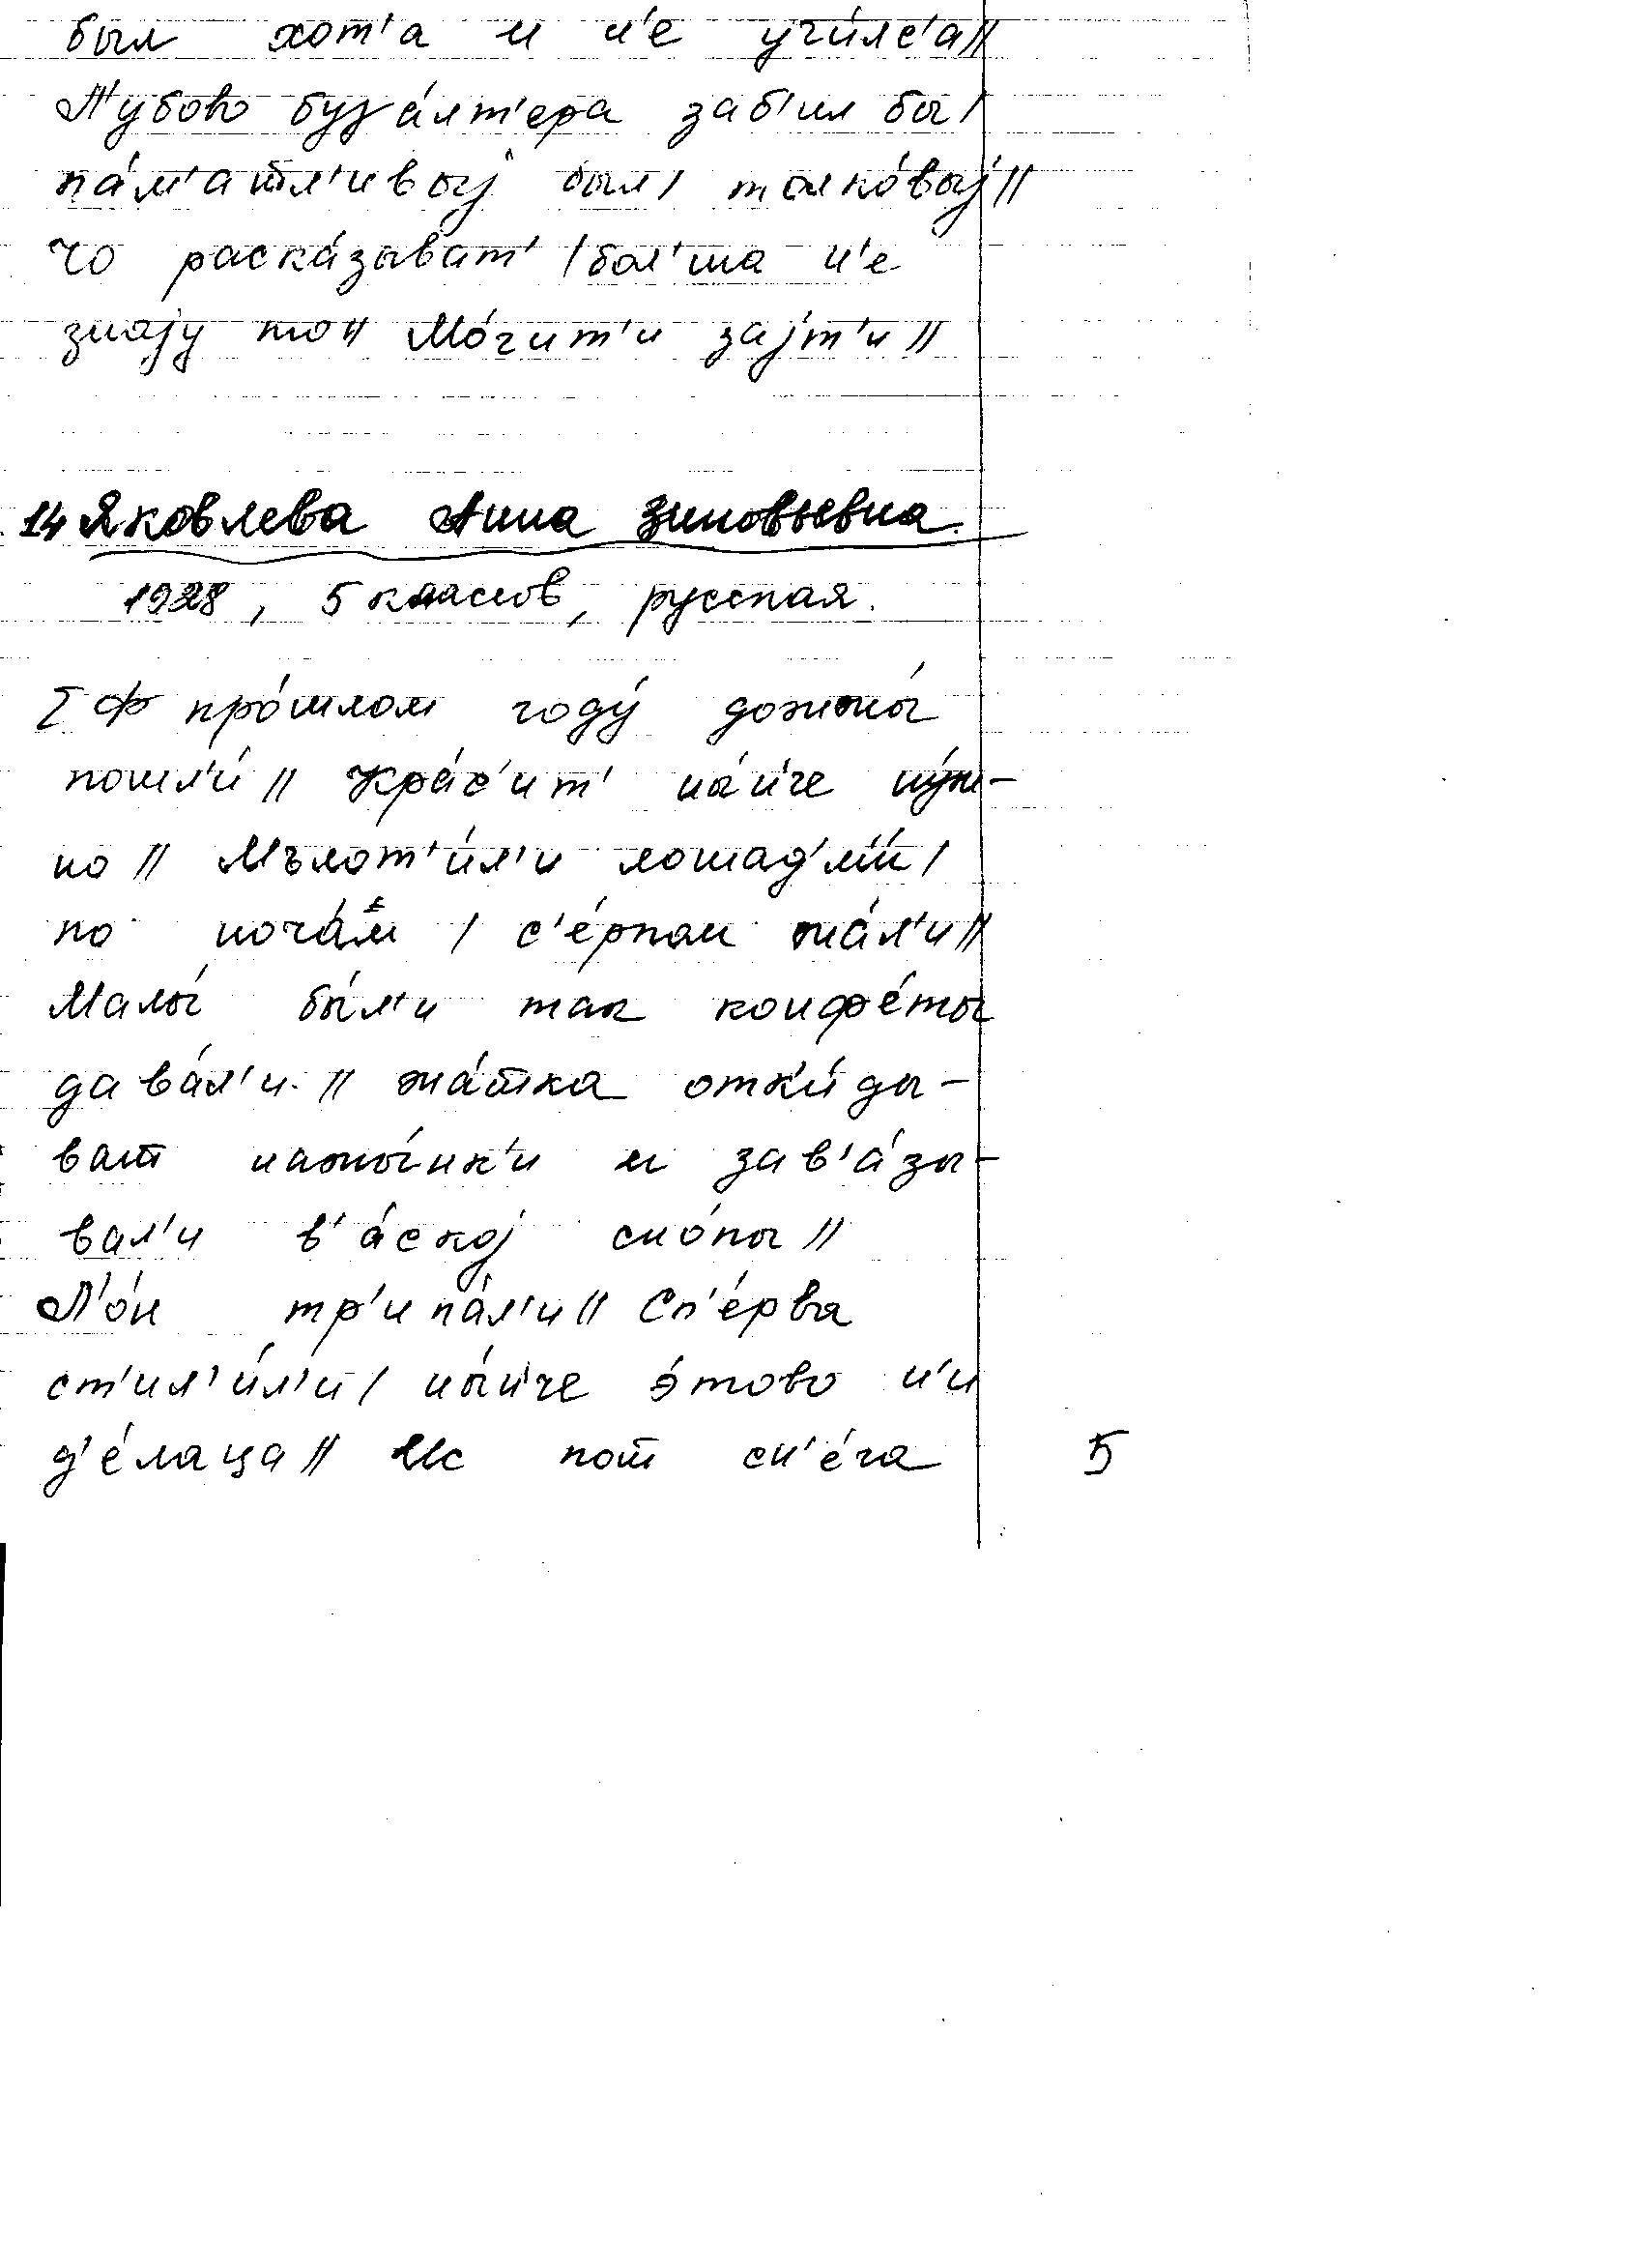 был хот'а и н'е учи́лс'а//
Л'убово буγа́лт'ера заб'ил бы/
па́м'атл'ивыj был/ толко́выj//
Чо расказ́ыват' /бол'ша н'е
знаjу то// Мо́гит'и заjт'и//
14 Яковлева Анна Зиновьевна.
1928, 5 классов, русская.
Σ Ф про́шлом году́ дожжы́
пошл'и́ // Кра́с'ит' ны́н'че ну́ж-
но // Мълот'и́л'и лошад'м'и́/
по ноча́м / с'е́рпом жа́л'и//
Малы́ бы́л'и так конфе́ты
дава́л'и // жа́тка отк'и́ды-
ват нажы́нк'и и зав'а́зы-
вал'и в'а́скоj сно́пы //
Л'о́н тр'ипа́л'и// Сп'е́рва
ст'ил'и́л'и/ ны́н'че э́тово н'и
д'е́лаца// Ис пот сн'е́га
5